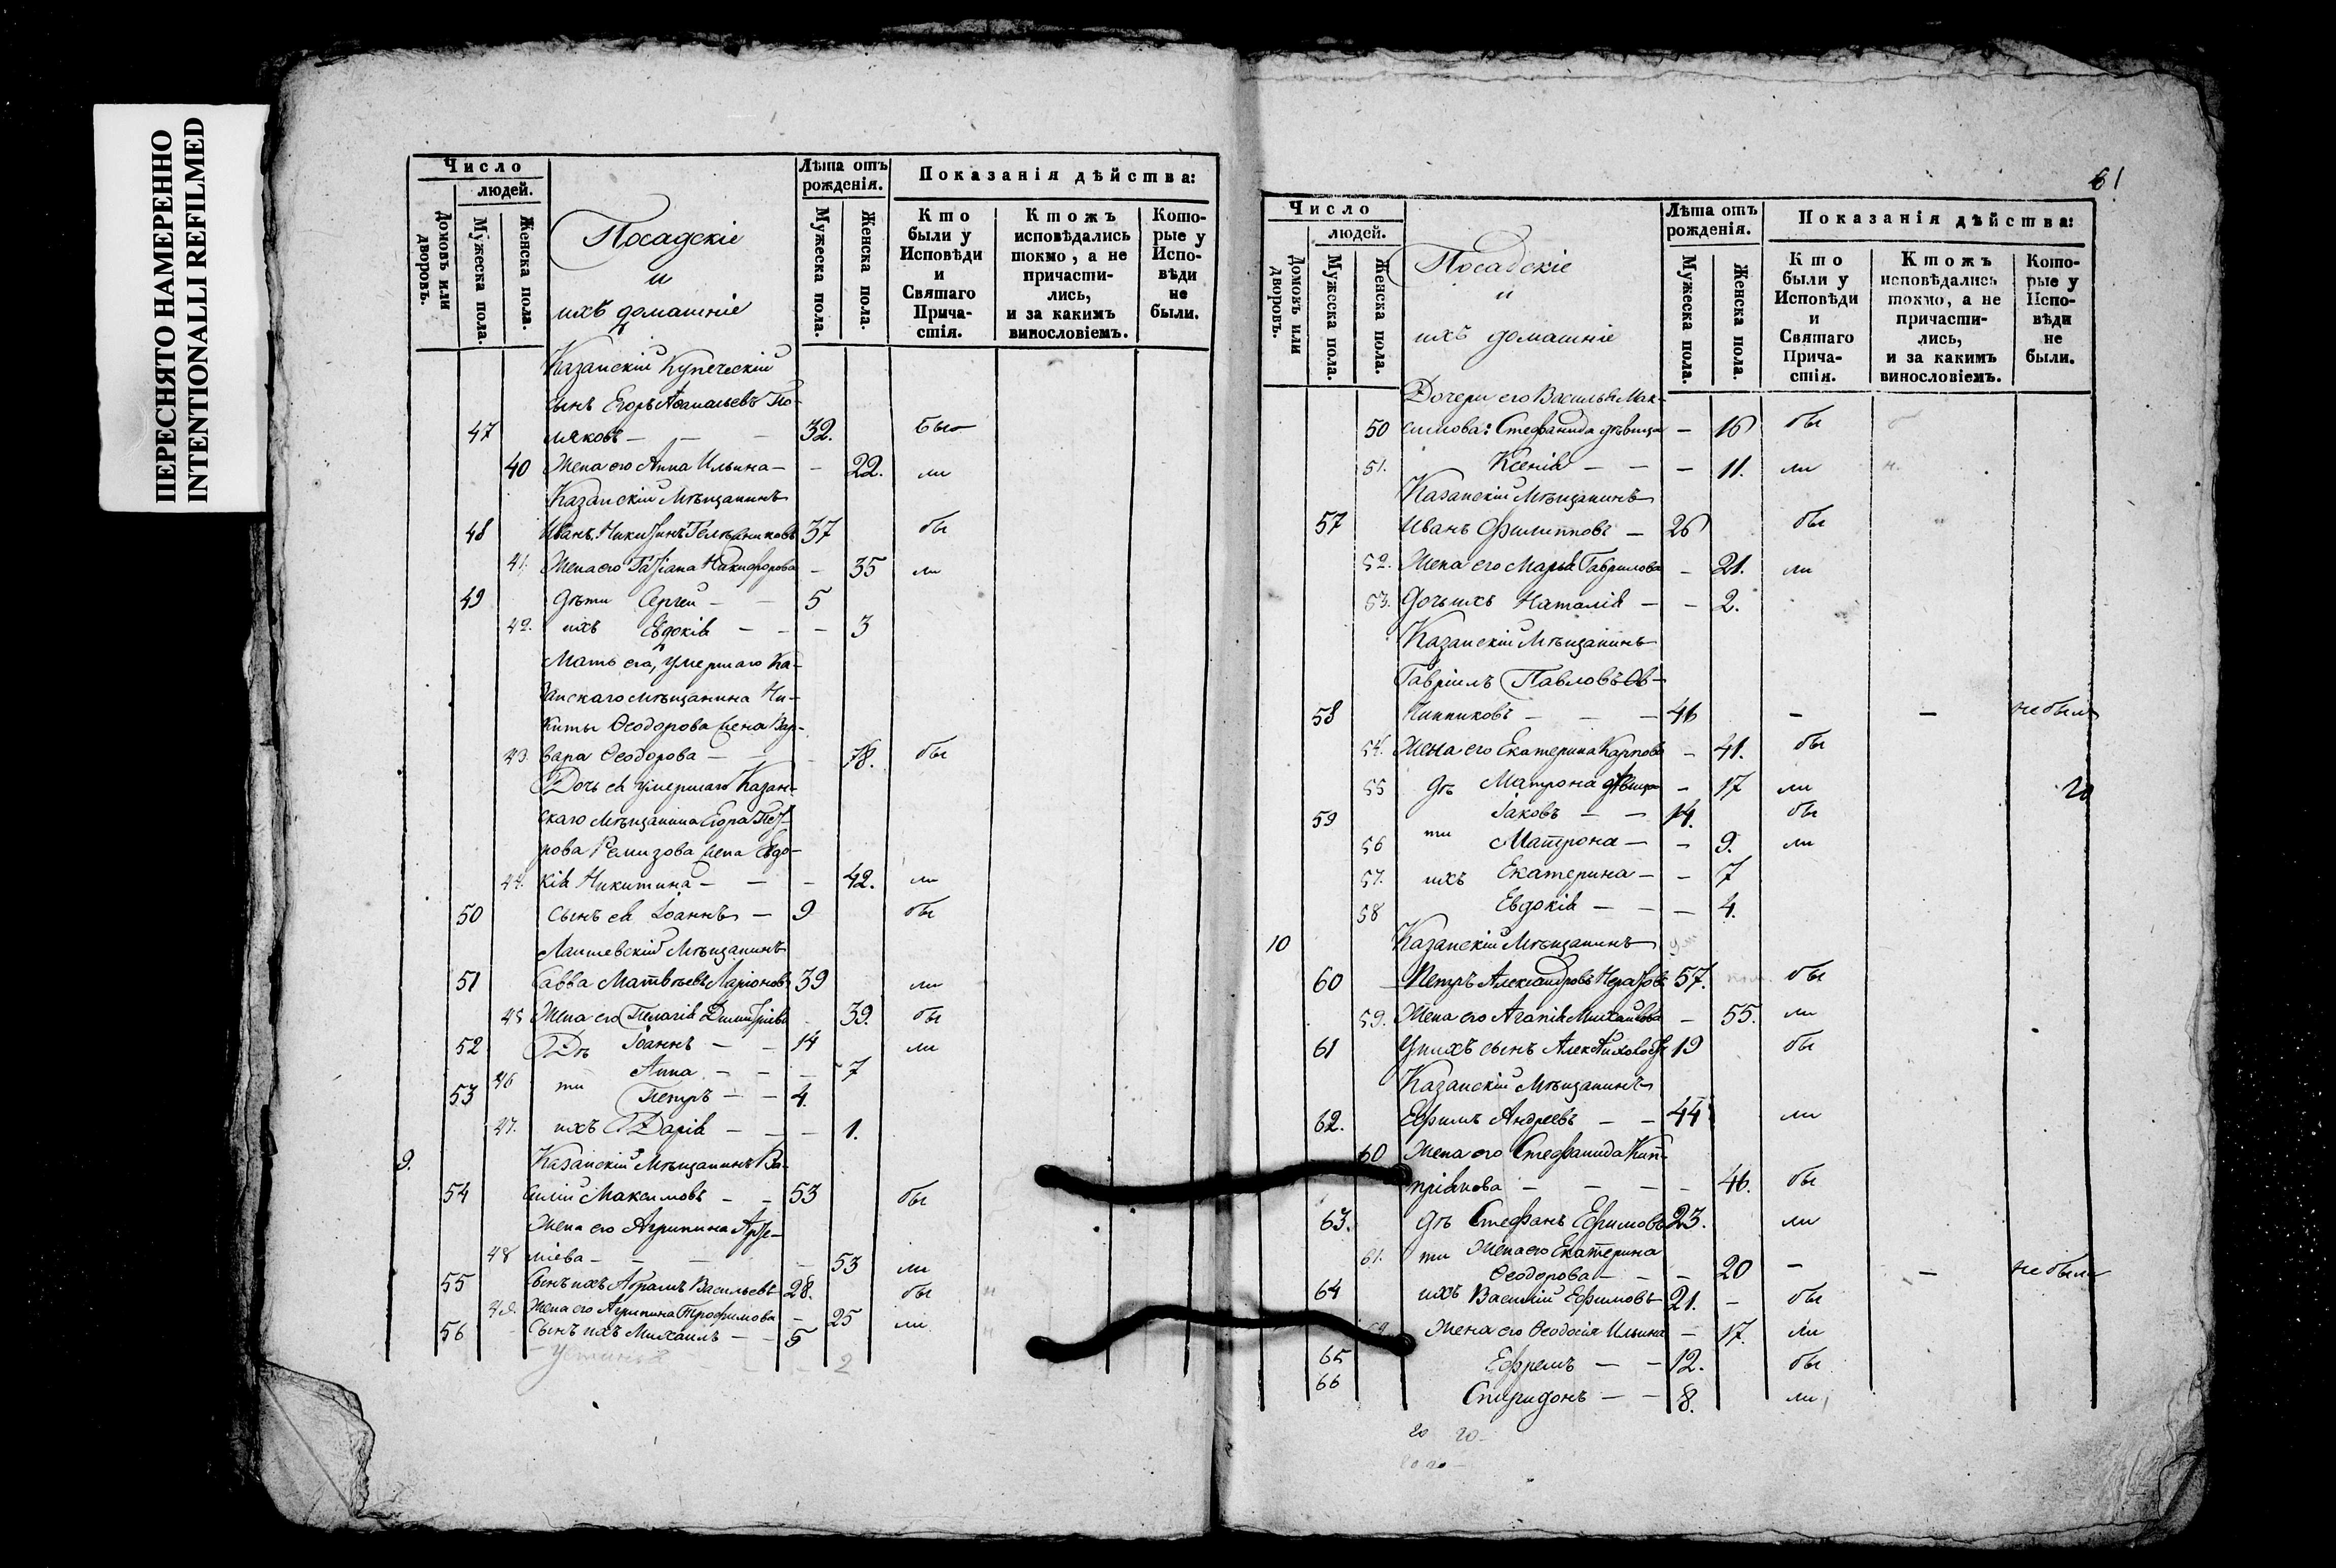 ПЕРЕСНЯТО НАМЕРЕННО
INTENTIONALLI REFILMED
Число
людей.
Домовъ или дворовъ.
Мужеска пола.
Женска пола.
Посадскіе
и
ихъ домашніе
Лѣта отъ рожденія.
Мужеска пола.
Женска пола.
Показанія дѣйства:
Кто были у Исповѣди и Святаго Причастія.
Ктожъ исповѣдались токмо, а не причастились, и за какимъ винословіемъ.
Которые у Исповѣди не были.
Казанскій Купеческій
сынъ Егоръ Аѳанасьевъ По-
47 ляковъ — — — 32. Бы
40 Жена его Анна Ильина — — 22. ли
Казанскій Мѣщанинъ
48 Иванъ Никитинъ 37 бы
41. Жена его Татіана Никифорова — 35 ли
49 дѣти Сергей — — 5
42. ихъ Евдокія — — — 3
Мать его, умершаго Ка-
занскаго мѣщанина Ни-
киты Ѳеодорова жена Вар-
43. вара Ѳеодорова — — 78. бы
Дочь ея умершаго Казан-
скаго Мѣщанина Егора Пет-
рова Ремизова жена Евдо-
44. кія Никитина — — — 42. ли
50 Сынъ ея Іоаннъ — 9 бы
Лаишевскій Мѣщанинъ
51 Савва Матвѣевъ Ларіоновъ 39 ли
45 Жена его Пелагія Димитріева — 39. бы
52 Дѣ Іоаннъ — — 14 ли
46 Анна — — — 7
53 ти Петръ — — 4.
47. ихъ Дарія — — — 1.
9. Казанскій Мѣщанинъ Ва-
54 силій Максимовъ — — 53 бы
Жена его Агрипина Арте-
48 міева — — — — 53 ли
55 Сынъ ихъ Абрамъ Васильевъ 28. бы
49. Жена его Агрипина Трофимова — 25 ли
56 Сынъ ихъ Михаилъ — — 5
Устинья — — 2
61
Число
людей.
Домовъ или дворовъ.
Мужеска пола.
Женска пола.
Посадскіе
и
ихъ домашніе
Лѣта отъ рожденія.
Мужеска пола.
Женска пола.
Показанія дѣйства:
Кто были у Исповѣди и Святаго Причастія.
Ктожъ исповѣдались токмо, а не причастились, и за какимъ винословіемъ.
Которые у Исповѣди не были.
Дочери его Василья Мак-
50 симова: Стефанида дѣвица — 16 бы
51. Ксенія — — — 11. ли
Казанскій Мѣщанинъ
57 Иванъ Филипповъ — 26 бы
52. Жена его Марья Гаврилова — 21. ли
53. Дочь ихъ Наталія — — 2.
Казанскій Мѣщанинъ
Гавріилъ Павловъ Ов-
58 чинниковъ — — — 46 — — не былъ
54. Жена его Екатерина Карпова — 41. бы
55 дѣ Матрона дѣвица — 17 ли 20
59 Іаковъ — — 14. бы
56 ти Матрона — — 9. ли
57. ихъ Екатерина — — 7
58 Евдокія — — — 4.
10 Казанскій Мѣщанинъ
60 Петръ Александровъ 57. бы
59. Жена его Агапія Михайлова — 55. ли
61 У нихъ сынъ 19 бы
Казанскій Мѣщанинъ
62. Ефимъ Андреевъ — — 44 ли
60 Жена его Стефанида Кип-
ріянова — — — — 46. бы
63. дѣ Стефанъ Ефимовъ 23. ли
61. ти Жена его Екатерина
Ѳеодорова — — — 20 — — не была
64 ихъ Василій Ефимовъ 21. — бы
62 Жена его Ѳеодосія Ильина — 17. ли
65 Ефремъ — — 12. бы
66 Спиридонъ — — 8. ли
20 20